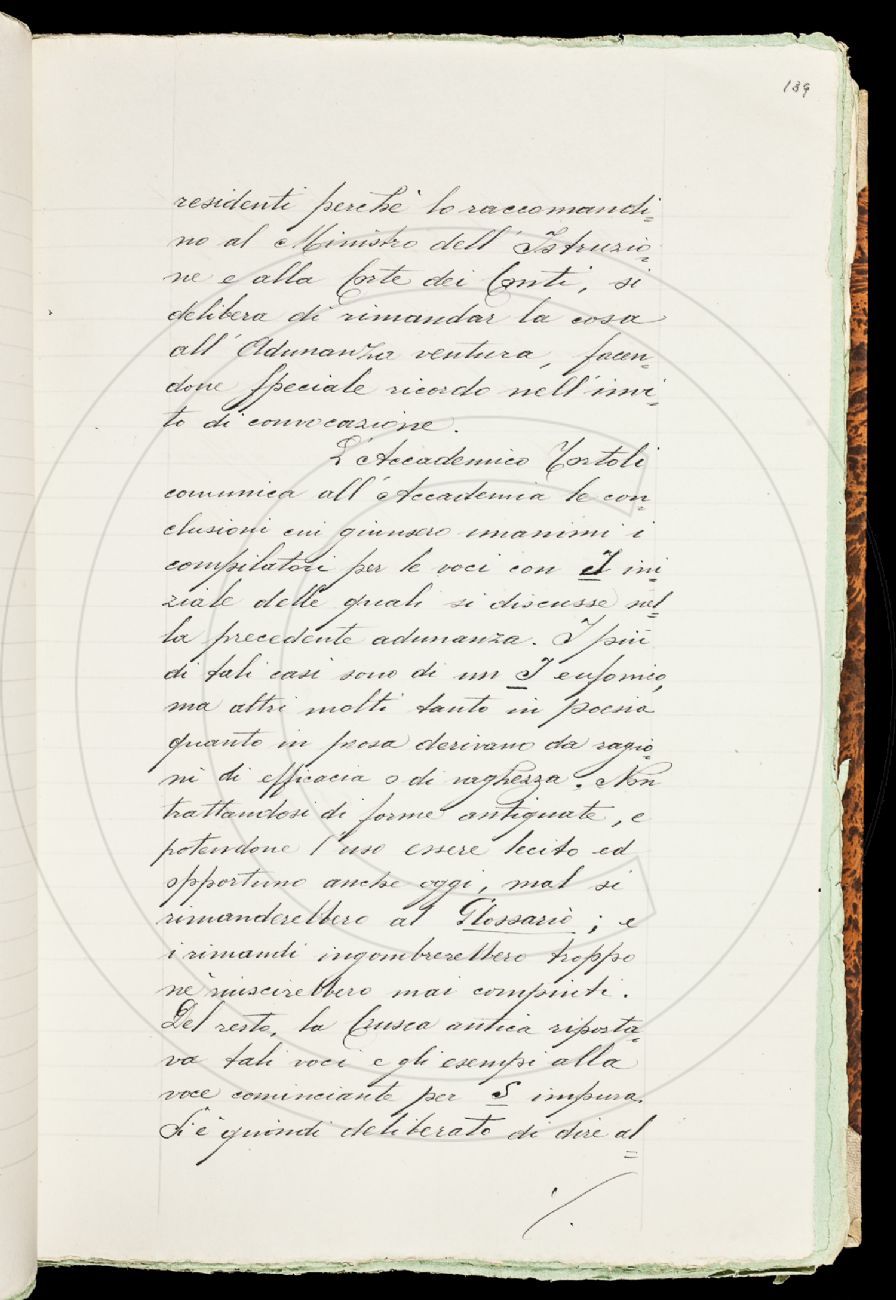 139
residenti perchè lo raccomandi=
no al Ministro dell'Istruzio=
ne e alla Corte dei Conti, si
delibera di rimandar la cosa
all'Adunanza ventura, facen=
done speciale ricordo nell'invi=
to di convocazione.
L'Accademico Tortoli
comunica all'Accademia le con=
clusioni cui giunsero unanimi i
compilatori per le voci con I ini=
ziale delle quali si discusse nel=
la precedente adunanza. I più
di tali casi sono di un I eufonico,
ma altri molti tanto in poesia
quanto in prosa derivano da ragio=
ni di efficacia o di vaghezza. Non
trattandosi di forme antiquate, e
potendone l'uso essere lecito ed
opportuno anche oggi, mal si
rimanderebbero al Glossario; e
i rimandi ingombrerebbero troppo
nè riuscirebbero mai compiuti.
Del resto, la Crusca antica riporta=
va tali voci e gli esempi alla
voce cominciante per S impura.
Si è quindi deliberato di dire al=
./.